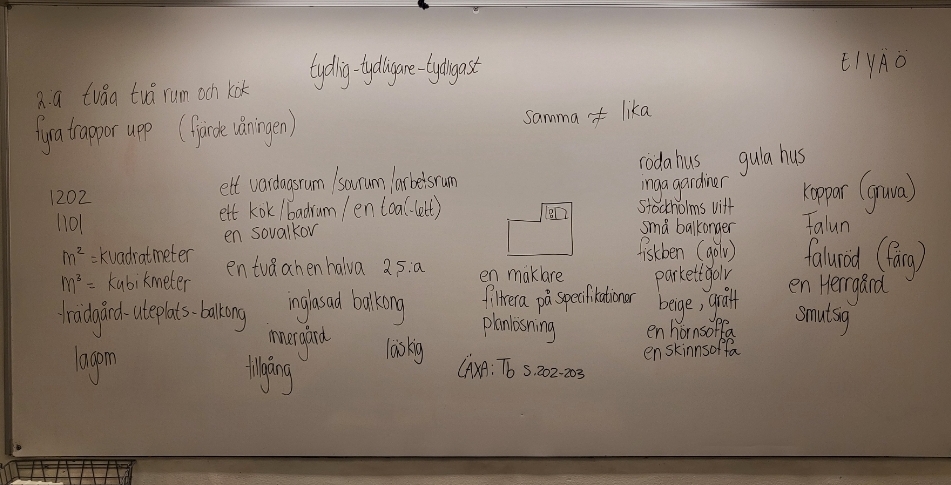 tydlig-tydligare-tydligast
E I Y Ä Ö
2:a tvåa två rum och kök
fyra trappor upp (fjärde våningen)
samma ≠ lika
1202
1101
m² = kvadratmeter
m³ = kubikmeter
trädgård-uteplats-balkong
lagom
ett vardagsrum/sovrum/arbetsrum
ett kök/badrum/en toa(-lett)
en sovalkov
en två och en halva 2 5:a
inglasad balkong
innergård
läskig
tillgång
en mäklare
filtrera på specifikationer
planlösning
LÄXA: Tb s.202-203
röda hus gula hus
inga gardiner
Stockholms vitt
små balkonger
fiskben (golv)
parkettgolv
beige, grått
en hörnsoffa
en skinnsoffa
koppar (gruva)
Falun
faluröd (färg)
en Herrgård
smutsig